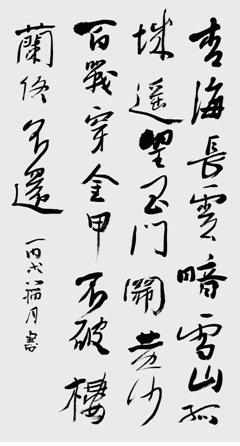 青海長雲暗雪山孤
城遙望玉門關黃沙
百戰穿金甲不破樓
蘭終不還
丙戌腊月書